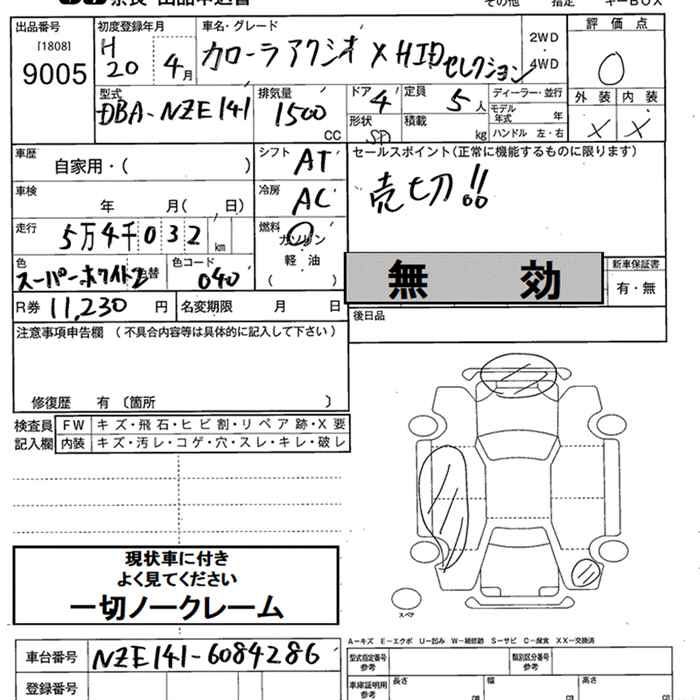 奈良 出品申込書 その他 指定 キーBOX
出品番号
[1808]
9005
初度登録年月
H
20 4月
車名・グレード
カローラアクシオ X HIDセレクション
2WD
4WD
評価点
0
型式
DBA-NZE141
排気量
1500
CC
ドア
4
定員
5人
形状
SD
積載
kg
ディーラー・並行
モデル年式 年
ハンドル 左・右
外装 内装
× ×
車歴
自家用・( )
シフト
AT
セールスポイント(正常に機能するものに限ります)
売切!!
車検
年 月( 日)
冷房
AC
走行
5万4千032km
燃料
ガソリン
軽油
( )
色
スーパーホワイト2 色替
色コード
040
無 効
新車保証書
有・無
R券 11,230 円
名変期限 月 日
後日品
注意事項申告欄 (不具合内容等は具体的に記入して下さい)
修復歴 有 〔箇所 〕
検査員記入欄
FW キズ・飛石・ヒビ割・リペア跡・X要
内装 キズ・汚レ・コゲ・穴・スレ・キレ・破レ
現状車に付き
よく見てください
一切ノークレーム
スペア
A-キズ E-エクボ U-凹み W-補修跡 S-サビ C-腐食 XX-交換済
車台番号 NZE141-6084286
登録番号
型式指定番号 参考
類別区分番号 参考
車庫証明用 参考
長さ 幅 高さ